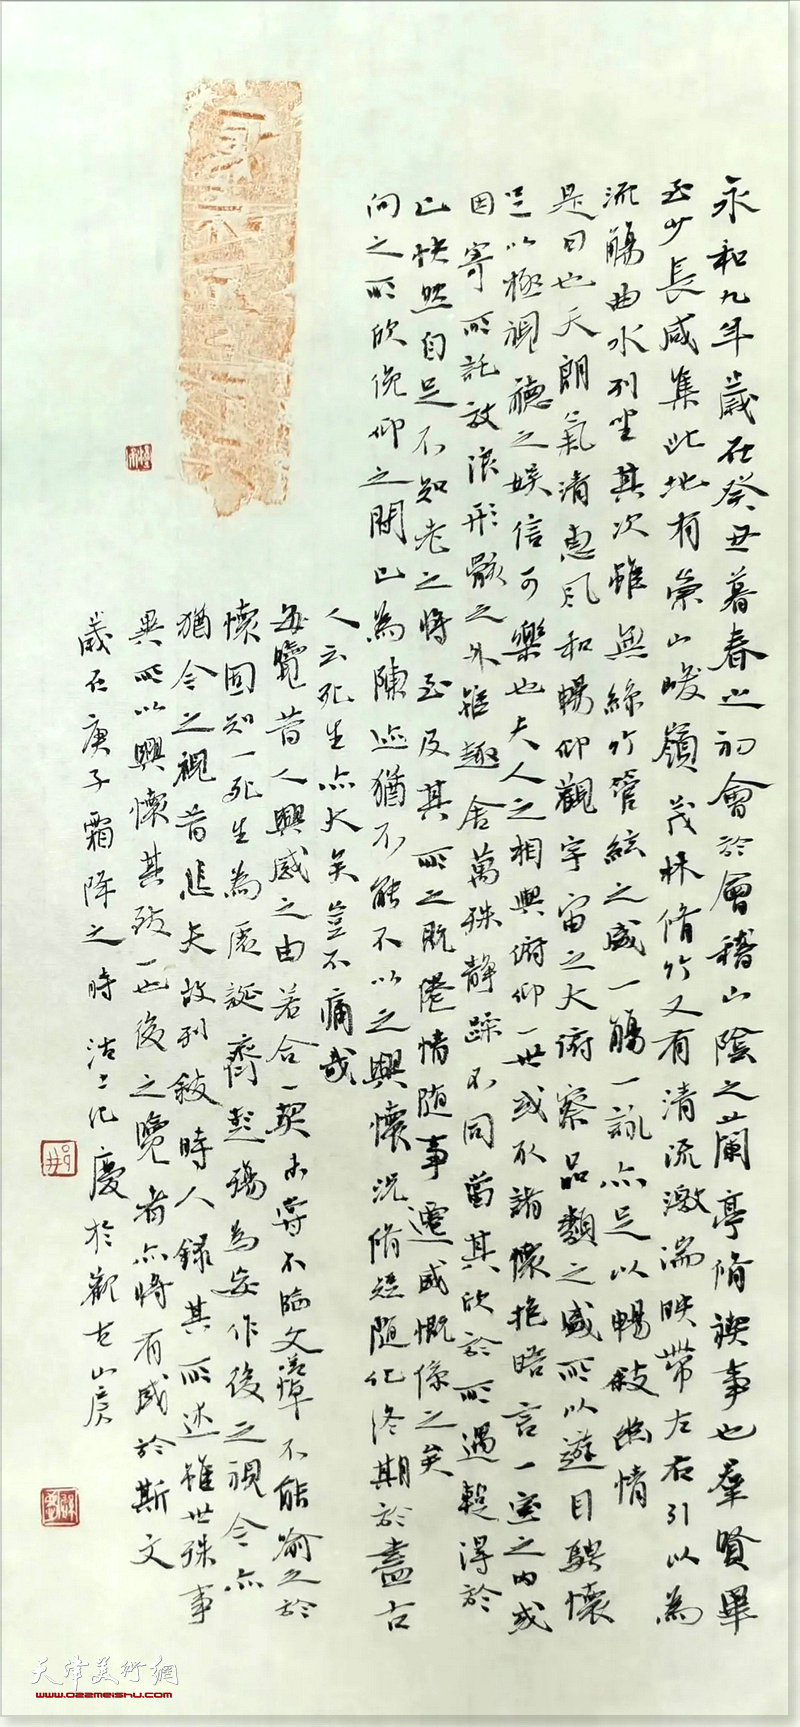 永和九年歲在癸丑暮春之初會於會稽山陰之蘭亭脩禊事也羣賢畢
至少長咸集此地有崇山峻嶺茂林脩竹又有清流激湍映帶左右引以為
流觴曲水列坐其次雖無絲竹管絃之盛一觴一詠亦足以暢敘幽情
是日也天朗氣清惠風和暢仰觀宇宙之大俯察品類之盛所以遊目騁懷
足以極視聽之娛信可樂也夫人之相與俯仰一世或取諸懷抱晤言一室之內或
因寄所託放浪形骸之外雖趣舍萬殊靜躁不同當其欣於所遇暫得於
己快然自足不知老之將至及其所之既倦情隨事遷感慨係之矣
向之所欣俛仰之間已為陳迹猶不能不以之興懷況脩短隨化終期於盡古
人云死生亦大矣豈不痛哉
每覽昔人興感之由若合一契未嘗不臨文嗟悼不能喻之於
懷固知一死生為虛誕齊彭殤為妄作後之視今亦
猶今之視昔悲夫故列敘時人錄其所述雖世殊事
異所以興懷其致一也後之覽者亦將有感於斯文
歲在庚子霜降之時沽上化慶於觀古山房
天津美術網
www.022meishu.com